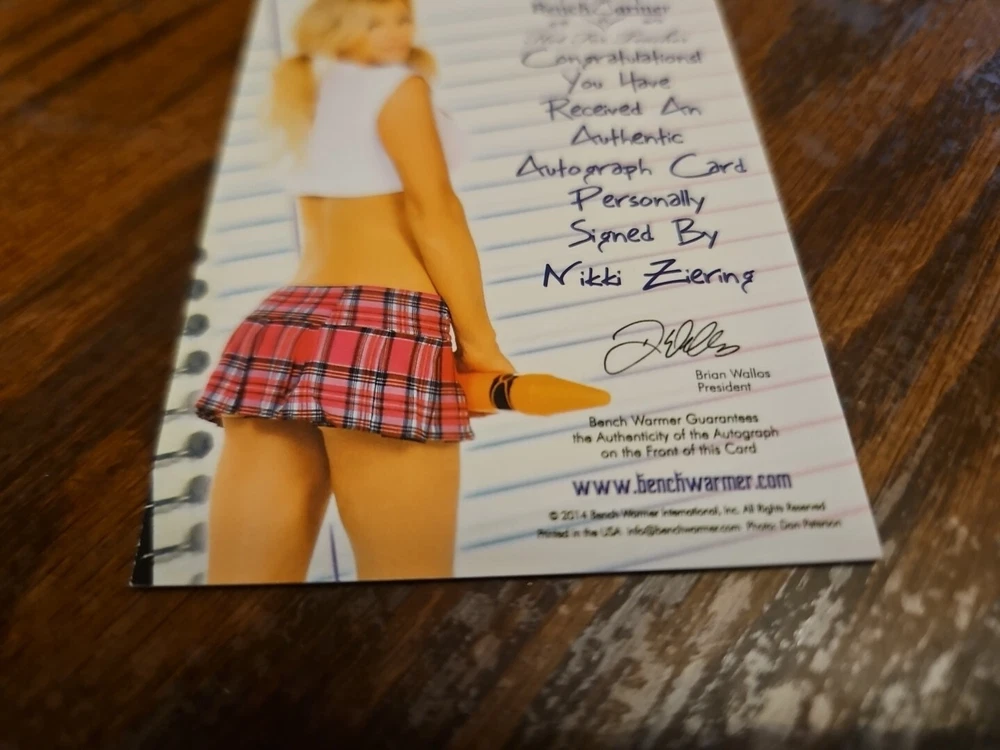 Bench Warmer
Hot For Teacher
Congratulations!
You Have
Received An
Authentic
Autograph Card
Personally
Signed By
Nikki Ziering
Brian Wallos
President
Bench Warmer Guarantees
the Authenticity of the Autograph
on the Front of this Card
www.benchwarmer.com
© 2014 Bench Warmer International, Inc. All Rights Reserved
Printed in the USA info@benchwarmer.com Photo: Dan Peterson